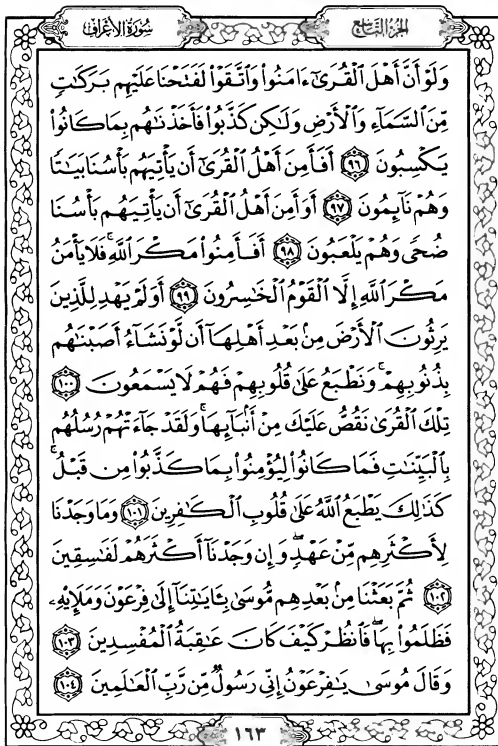 سُورَةُ الأَعْرَافِ
الجُزْءُ التَّاسِعُ
وَلَوْ أَنَّ أَهْلَ ٱلْقُرَىٰٓ ءَامَنُوا۟ وَٱتَّقَوْا۟ لَفَتَحْنَا عَلَيْهِم بَرَكَـٰتٍ
مِّنَ ٱلسَّمَآءِ وَٱلْأَرْضِ وَلَـٰكِن كَذَّبُوا۟ فَأَخَذْنَـٰهُم بِمَا كَانُوا۟
يَكْسِبُونَ ٩٦ أَفَأَمِنَ أَهْلُ ٱلْقُرَىٰٓ أَن يَأْتِيَهُم بَأْسُنَا بَيَـٰتًا
وَهُمْ نَآئِمُونَ ٩٧ أَوَأَمِنَ أَهْلُ ٱلْقُرَىٰٓ أَن يَأْتِيَهُم بَأْسُنَا
ضُحًى وَهُمْ يَلْعَبُونَ ٩٨ أَفَأَمِنُوا۟ مَكْرَ ٱللَّهِ ۚ فَلَا يَأْمَنُ
مَكْرَ ٱللَّهِ إِلَّا ٱلْقَوْمُ ٱلْخَـٰسِرُونَ ٩٩ أَوَلَمْ يَهْدِ لِلَّذِينَ
يَرِثُونَ ٱلْأَرْضَ مِنۢ بَعْدِ أَهْلِهَآ أَن لَّوْ نَشَآءُ أَصَبْنَـٰهُم
بِذُنُوبِهِمْ ۚ وَنَطْبَعُ عَلَىٰ قُلُوبِهِمْ فَهُمْ لَا يَسْمَعُونَ ١٠٠
تِلْكَ ٱلْقُرَىٰ نَقُصُّ عَلَيْكَ مِنْ أَنۢبَآئِهَا ۚ وَلَقَدْ جَآءَتْهُمْ رُسُلُهُم
بِٱلْبَيِّنَـٰتِ فَمَا كَانُوا۟ لِيُؤْمِنُوا۟ بِمَا كَذَّبُوا۟ مِن قَبْلُ ۚ
كَذَٰلِكَ يَطْبَعُ ٱللَّهُ عَلَىٰ قُلُوبِ ٱلْكَـٰفِرِينَ ١٠١ وَمَا وَجَدْنَا
لِأَكْثَرِهِم مِّنْ عَهْدٍ ۖ وَإِن وَجَدْنَآ أَكْثَرَهُمْ لَفَـٰسِقِينَ
١٠٢ ثُمَّ بَعَثْنَا مِنۢ بَعْدِهِم مُّوسَىٰ بِـَٔايَـٰتِنَآ إِلَىٰ فِرْعَوْنَ وَمَلَإِي۟هِۦ
فَظَلَمُوا۟ بِهَا ۖ فَٱنظُرْ كَيْفَ كَانَ عَـٰقِبَةُ ٱلْمُفْسِدِينَ ١٠٣
وَقَالَ مُوسَىٰ يَـٰفِرْعَوْنُ إِنِّى رَسُولٌ مِّن رَّبِّ ٱلْعَـٰلَمِينَ ١٠٤
١٦٣